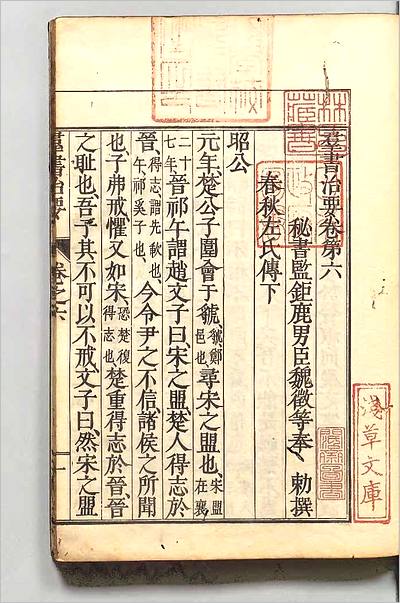 羣書治要卷第六
秘書監鉅鹿男臣魏徵等奉 勅撰
春秋左氏傳下
昭公
元年楚公子圍會于虢虢鄭邑也尋宋之盟也宋盟在襄
二十七年晉祁午謂趙文子曰宋之盟楚人得志於
晉得志謂先歃也午祁奚子也今令尹之不信諸侯之所聞
也子弗戒懼又如宋恐楚復得志也楚重得志於晉晉
之耻也吾子其不可以不戒文子曰然宋之盟
羣書治要 卷之六 一
淺草文庫